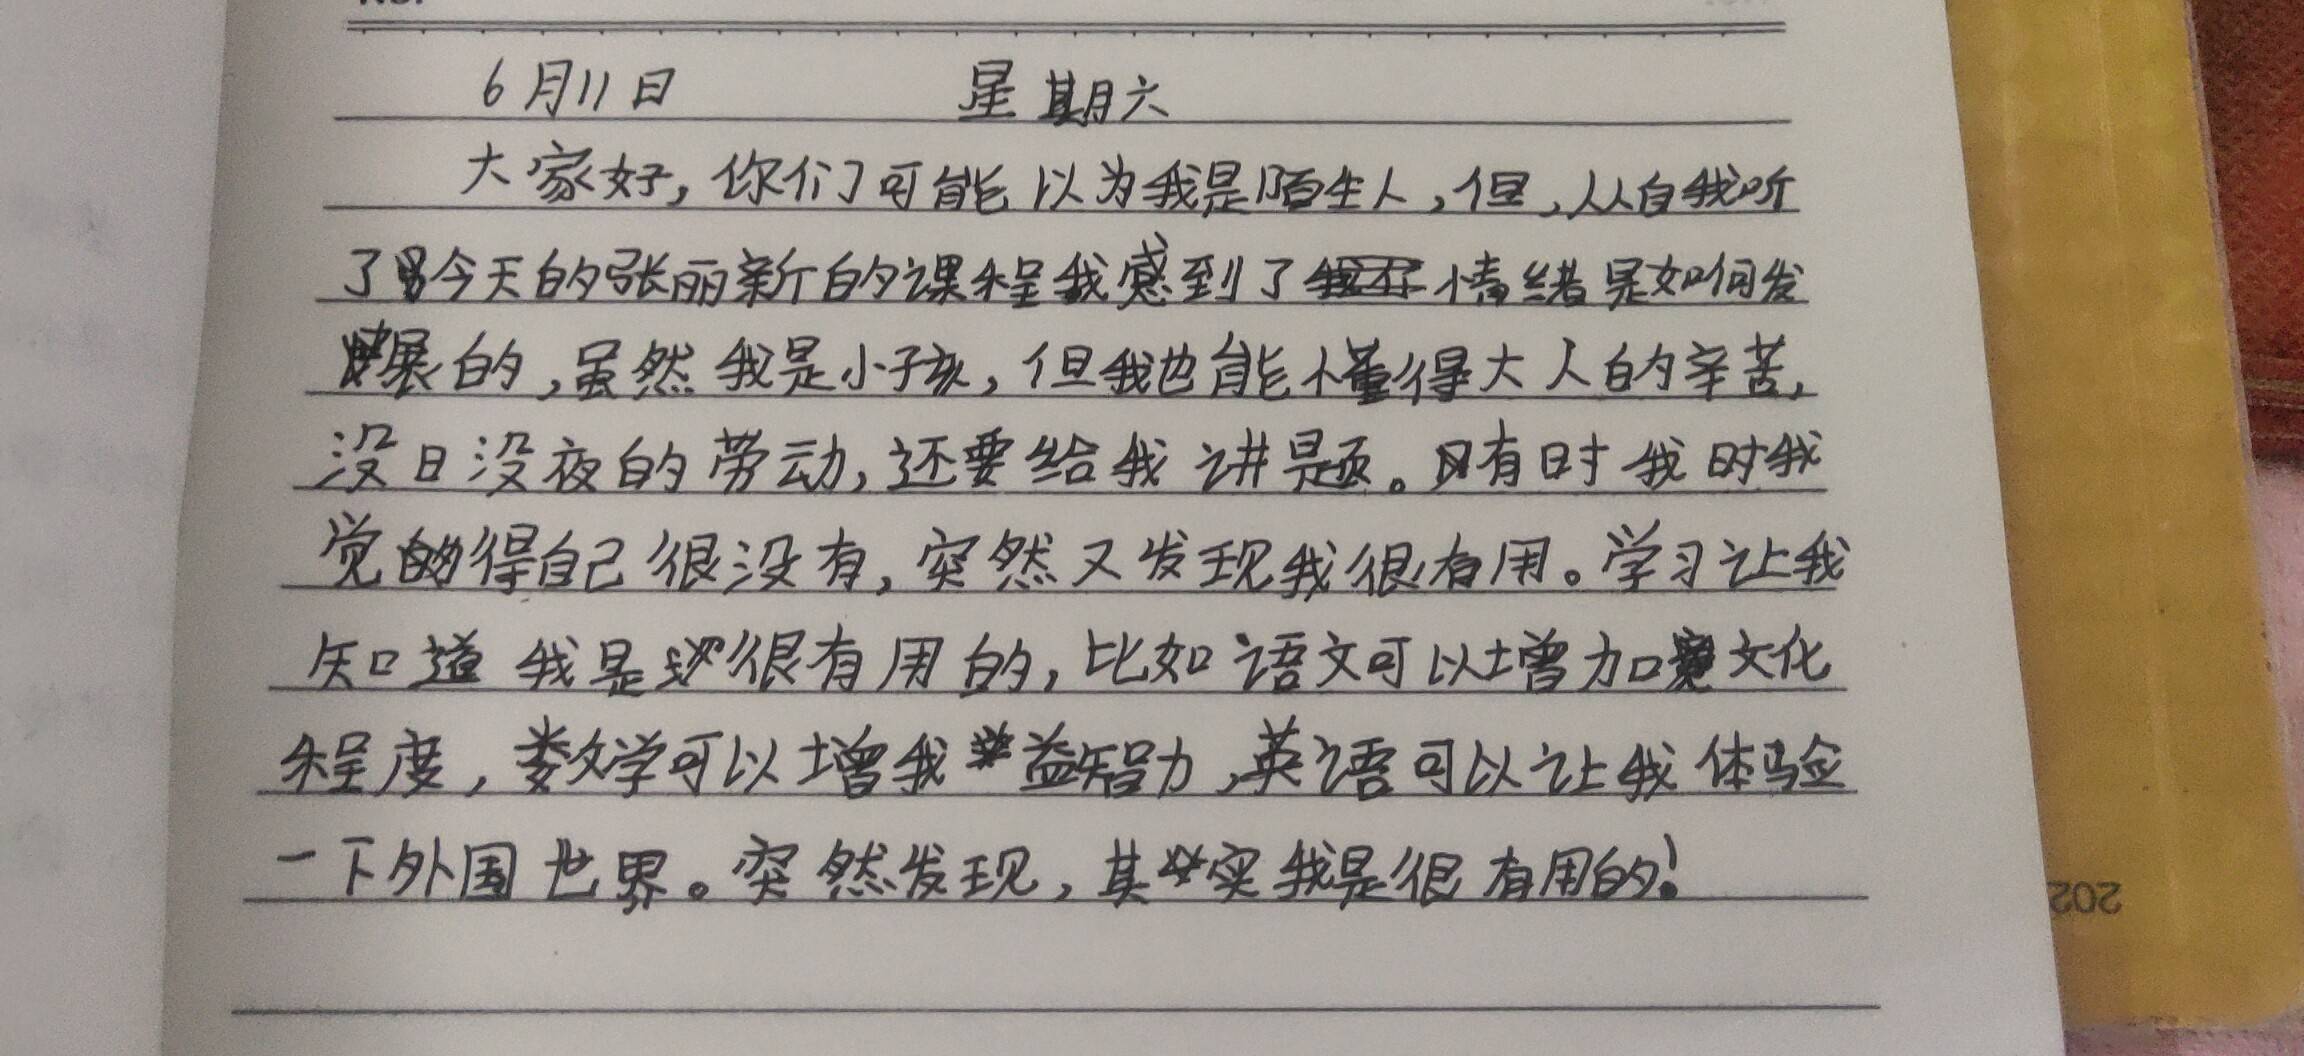 6月11日 星期六
大家好，你们可能以为我是陌生人，但，从自我听
了今天的张丽新的课程我感到了情绪是如何发
展的，虽然我是小孩，但我也能懂得大人的辛苦，
没日没夜的劳动，还要给我讲题。有时我时我
觉得自己很没有，突然又发现我很有用。学习让我
知道我是很有用的，比如语文可以增加文化
程度，数学可以增我益智力，英语可以让我体验
一下外国世界。突然发现，其实我是很有用的！
202